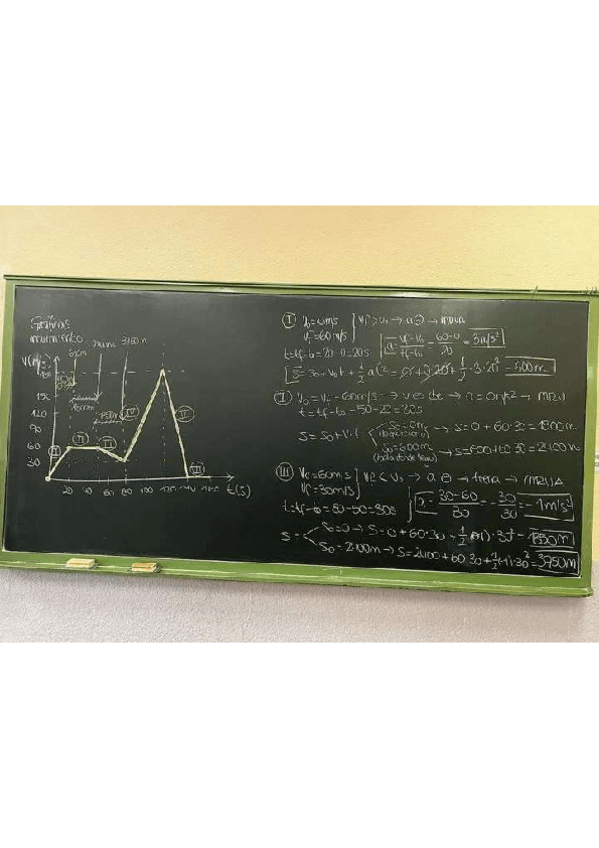 Gráficas
movimiento
V(m/s)
180
150
120
90
60
30
20 40 60 80 100 120 140 160 t(s)
I
II
III
IV
V
VI
600m
3750m
1800m
1350m
I V₀=0m/s
Vf=60m/s } Vf>V₀ → a⊕ → MRUA
t=tf-t₀=20-0=20s
a=Vf-V₀/tf-t₀=60-0/20=3m/s²
S=S₀+V₀t+1/2at²=0+0·20+1/2·3·20²=600m
II V₀=Vf=60m/s → v es cte → a=0m/s² → MRU
t=tf-t₀=50-20=30s
S=S₀+v·t
S₀=0m → S=0+60·30=1800m
S₀=600m → S=600+60·30=2400m
III V₀=60m/s
Vf=30m/s } Vf<V₀ → a⊖ → frena → MRUA
t=tf-t₀=80-50=30s
a=30-60/30=-30/30=-1m/s²
S=
S₀=0 → S=0+60·30+1/2(-1)·30²=1350m
S₀=2400m → S=2400+60·30+1/2(-1)·30²=3750m